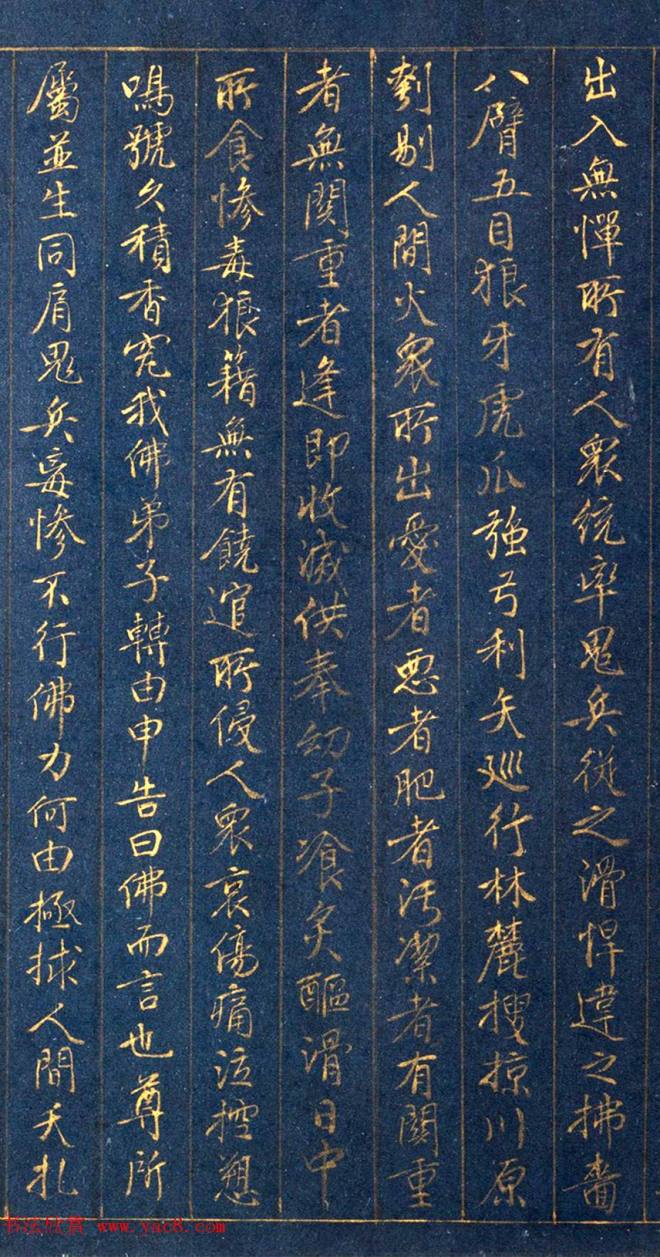 出入無憚所有人眾統率鬼兵從之滑悍違之拂嗇
八臂五目狼牙虎爪強弓利矢巡行林麓搜掠川原
刳剔人間火眾所出愛者惡者肥者污潔者有關重
者無關重者逢即收滅供奉幼子飡炙醧滑日中
所食慘毒狼籍無有饒逭所侵人眾哀傷痛泣控愬
鳴號久積香究我佛弟子轉由申告曰佛而言也尊所
屬並生同肩鬼兵毒慘不行佛力何由極捄人間夭札
书法欣赏 www.yac8.com